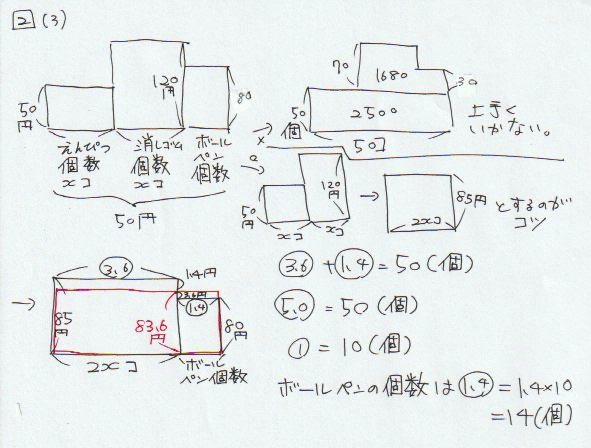 2 (3)
50円
120円
80
えんぴつ
個数
xコ
消しゴム
個数
xコ
ボール
ペン
個数
50円
→
x
70
1680
30
50
個
2500
50コ
上手く
いかない。
→
50円
120円
xコ
xコ
→
85円
2xコ
とするのが
コツ
→
3.6
1.4円
3.6円
1.4
85円
83.6円
80円
2xコ
ボール
ペン個数
3.6 + 1.4 = 50(個)
5.0 = 50(個)
1 = 10(個)
ボールペンの個数は 1.4 = 1.4×10
= 14(個)